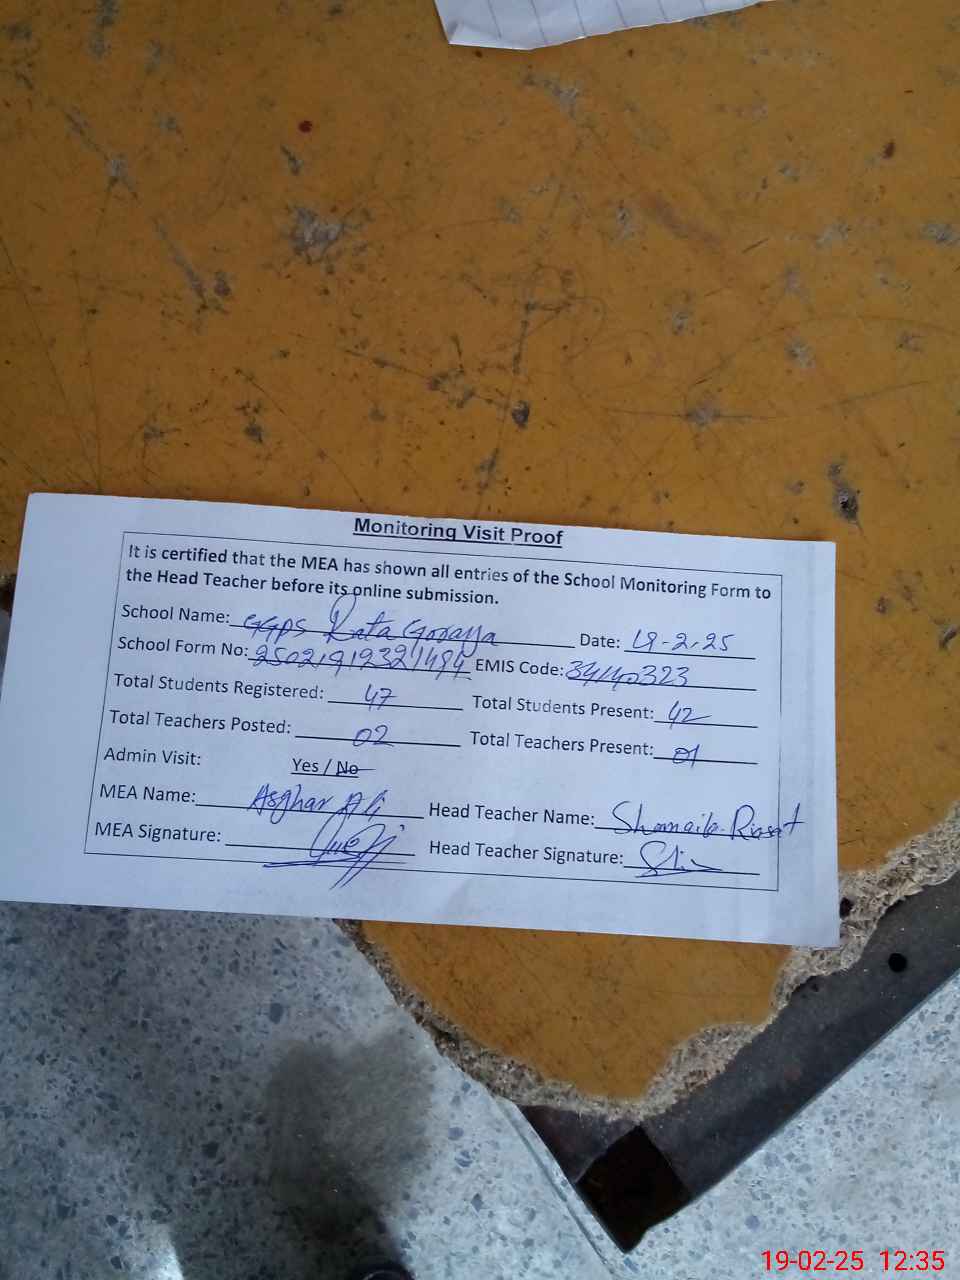 Monitoring Visit Proof
It is certified that the MEA has shown all entries of the School Monitoring Form to
the Head Teacher before its online submission.
School Name: GGPS Rata Goraya Date: 19-2-25
School Form No: 25021912321494 EMIS Code: 34140323
Total Students Registered: 47 Total Students Present: 42
Total Teachers Posted: 02 Total Teachers Present: 01
Admin Visit: Yes / No
MEA Name: Asghar Ali Head Teacher Name: Shomaila Riasat
MEA Signature: Head Teacher Signature:
19-02-25 12:35